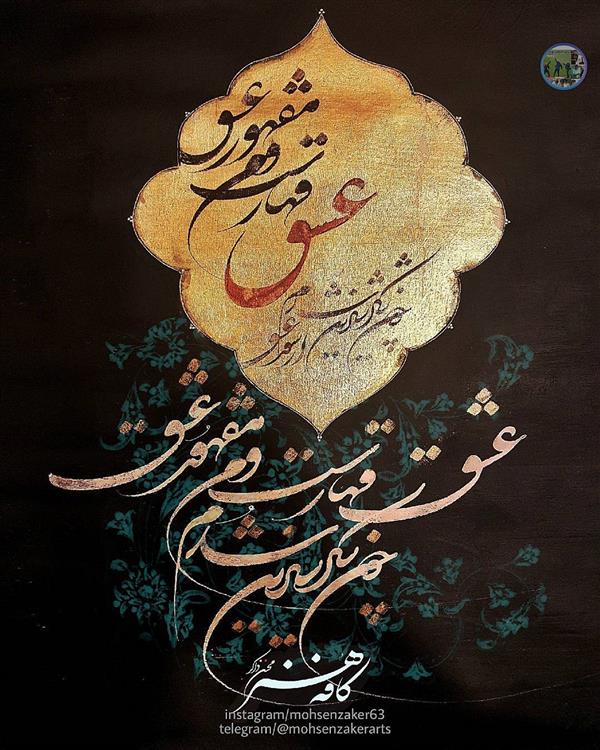 مقهور عشق
قهارست و من
عشق
چون شکر شیرین شدم
از شور عشق
عشق قهارست و من مقهور عشق
چون شکر شیرین شدم
کافه هنر
محسن ذاکر
instagram/mohsenzaker63
telegram/@mohsenzakerarts